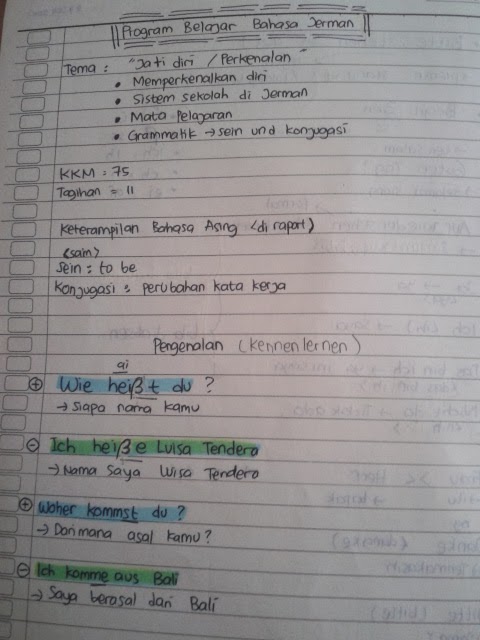 Program Belajar Bahasa Jerman
Tema : "Jati diri / Perkenalan"
• Memperkenalkan diri
• Sistem sekolah di Jerman
• Mata Pelajaran
• Grammatik → sein und konjugasi
KKM = 75
Tagihan = 11
Keterampilan Bahasa Asing (di raport)
(sain)
Sein : to be
Konjugasi : perubahan kata kerja
Pergenalan (kennenlernen)
ai
+ Wie heißt du ?
→ Siapa nama kamu
- Ich heiße Luisa Tendero
→ Nama saya Luisa Tendero
+ Woher kommst du ?
→ Darimana asal kamu?
- Ich komme aus Bali
→ Saya berasal dari Bali